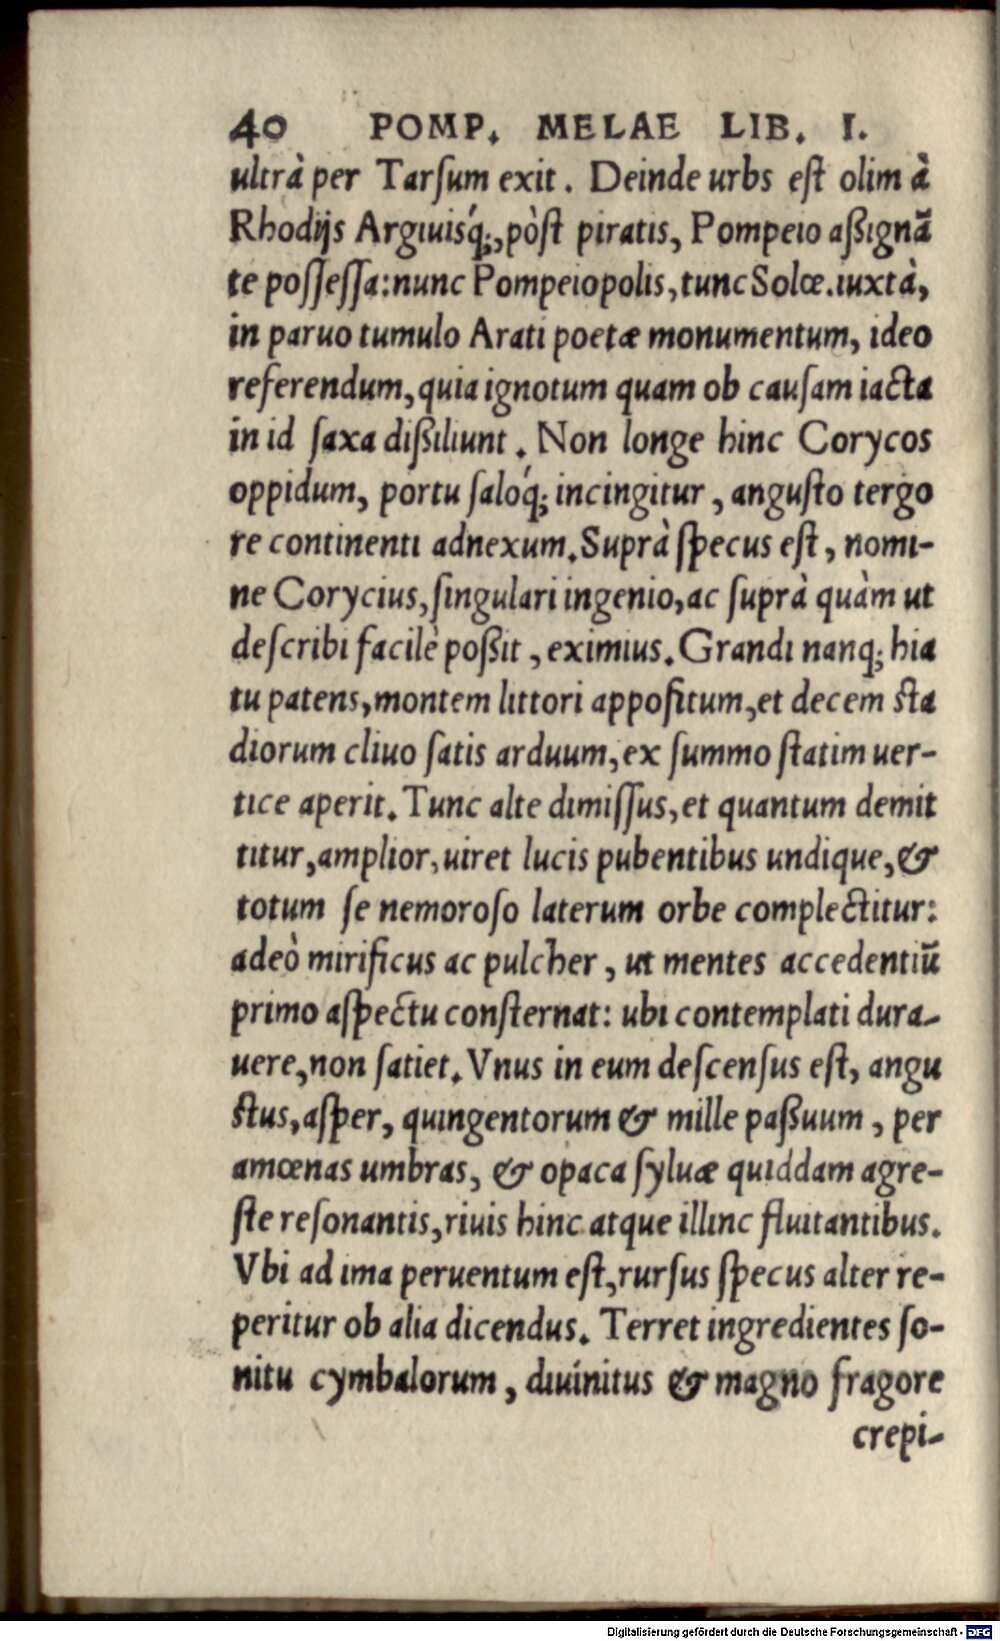 40 POMP. MELAE LIB. I.
ultrà per Tarſum exit. Deinde urbs eſt olim à
Rhodijs Argiuisq́;, pòſt piratis, Pompeio aßignã
te poſſeſſa: nunc Pompeiopolis, tunc Solœ. iuxtà,
in paruo tumulo Arati poetæ monumentum, ideo
referendum, quia ignotum quam ob cauſam iacta
in id ſaxa dißiliunt. Non longe hinc Corycos
oppidum, portu ſaloq́; incingitur, anguſto tergo
re continenti adnexum. Suprà ſpecus eſt, nomi-
ne Corycius, ſingulari ingenio, ac ſuprà quàm ut
deſcribi facilè poßit, eximius. Grandi nanq; hia
tu patens, montem littori appoſitum, et decem ſta
diorum cliuo ſatis arduum, ex ſummo ſtatim uer-
tice aperit. Tunc alte dimiſſus, et quantum demit
titur, amplior, uiret lucis pubentibus undique, &
totum ſe nemoroſo laterum orbe complectitur:
adeò mirificus ac pulcher, ut mentes accedentiũ
primo aſpectu conſternat: ubi contemplati dura-
uere, non ſatiet. Vnus in eum deſcenſus eſt, angu
ſtus, aſper, quingentorum & mille paßuum, per
amœnas umbras, & opaca ſyluæ quiddam agre-
ſte reſonantis, riuis hinc atque illinc fluitantibus.
Vbi ad ima peruentum eſt, rurſus ſpecus alter re-
peritur ob alia dicendus. Terret ingredientes ſo-
nitu cymbalorum, diuinitus & magno fragore
crepi-
Digitalisierung gefördert durch die Deutsche Forschungsgemeinschaft - DFG